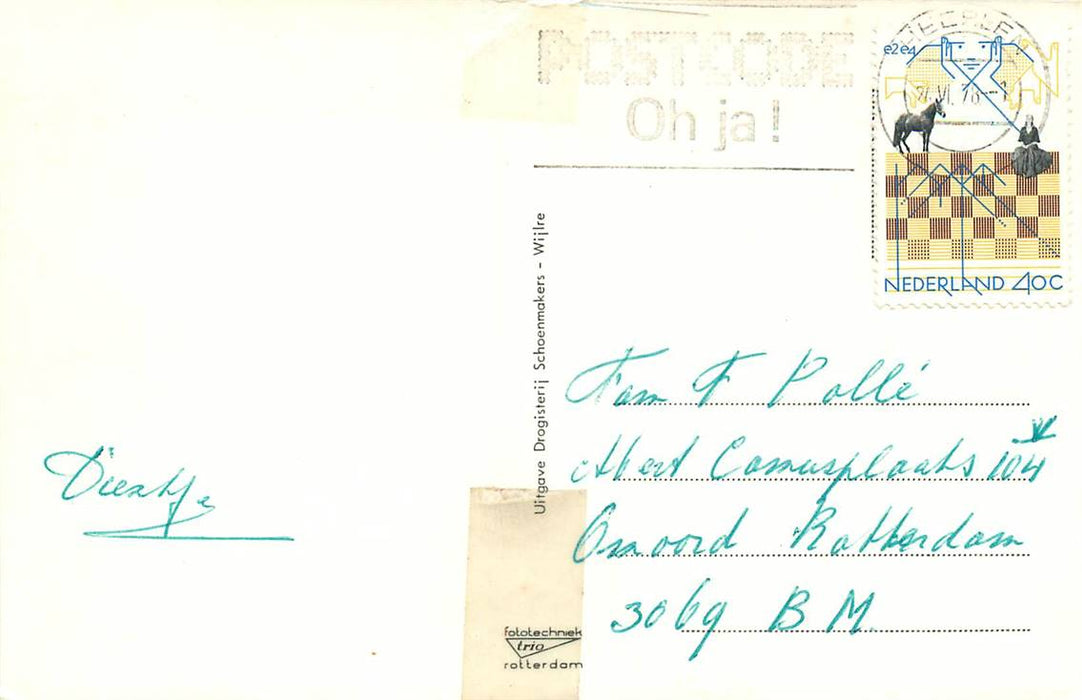 POSTCODE
Oh ja!
HEERLEN
VI. 78
e2e4
NEDERLAND 40C
Uitgave Drogisterij Schoenmakers - Wijlre
Fam F Pollé
Albert Camusplaats 104
Omoord Rotterdam
3069 BM.
Dientje
fototechniek
trio
rotterdam